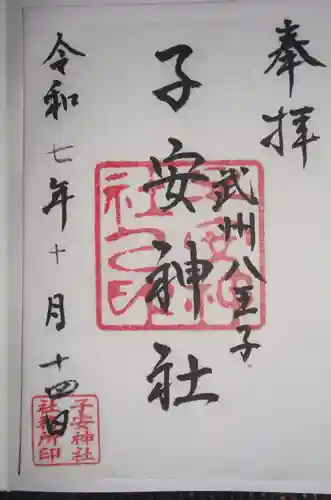 奉拝
武州八王子
子安神社
令和七年十月十四日
子安神社
社務所印